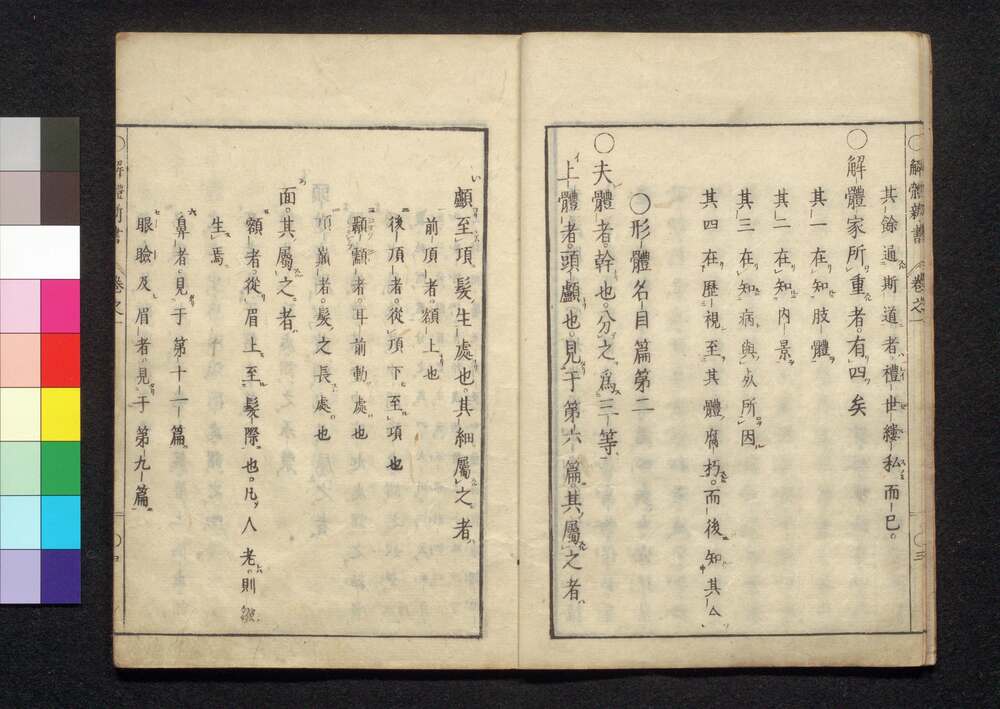 解體新書 卷之一 〇三
其餘通斯道者禮世縷私而已。
〇解體家所重者。有四矣
其一在知肢體
其二在知內景
其三在知病與所因
其四在歷視至其體腐朽。而後知其
〇形體名目篇第二
〇夫體者。幹也。分之爲三等、
上體者頭顱也。見于第六篇。其屬之者
顱至頂髮生處也。其細屬之者
前頂者。額上也
後頂者。從頂下至項也
顳顬者。耳前動處。也
者。髮之長處。也
面。其屬之者
額者。從眉上至髮際也。凡人老。則皺
生焉
鼻者。見于第十一篇
眼瞼及眉者。見于第九篇
解體新書 卷之一 〇四